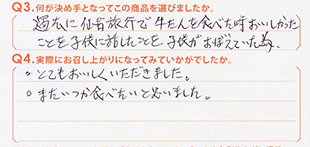 Q3.何が決め手となってこの商品を選びましたか。
過去に仙台旅行で牛たんを食べた時おいしかった
ことを子供に話したことを子供がおぼえていた為。
Q4.実際にお召し上がりになってみていかがでしたか。
○とてもおいしくいただきました。
○またいつか食べたいと思いました。